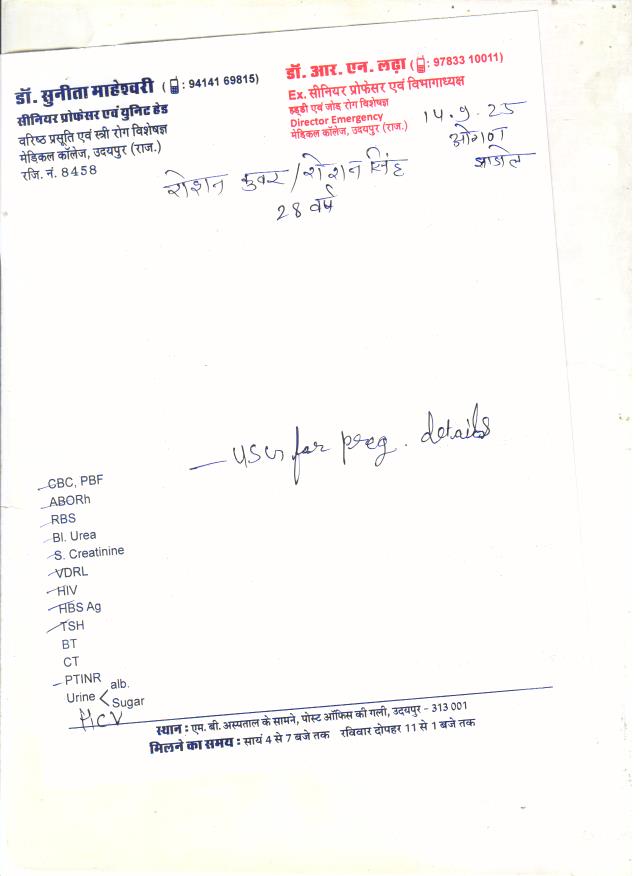 डॉ. सुनीता माहेश्वरी ( : 94141 69815)
सीनियर प्रोफेसर एवं यूनिट हेड
वरिष्ठ प्रसूति एवं स्त्री रोग विशेषज्ञ
मेडिकल कॉलेज, उदयपुर (राज.)
रजि. नं. 8458
डॉ. आर. एन. लढ़ा ( : 97833 10011)
Ex. सीनियर प्रोफेसर एवं विभागाध्यक्ष
हड्डी एवं जोड़ रोग विशेषज्ञ
Director Emergency
मेडिकल कॉलेज, उदयपुर (राज.)
14.9.25
ओगणा
झाडोल
रोशन कुवर / रोशन सिंह
28 वर्ष
— USG for preg. details
CBC, PBF
ABORh
RBS
Bl. Urea
S. Creatinine
VDRL
HIV
HBS Ag
TSH
BT
CT
PTINR
Urine < alb.
Sugar
HCV
स्थान : एम. बी. अस्पताल के सामने, पोस्ट ऑफिस की गली, उदयपुर - 313 001
मिलने का समय : सायं 4 से 7 बजे तक रविवार दोपहर 11 से 1 बजे तक